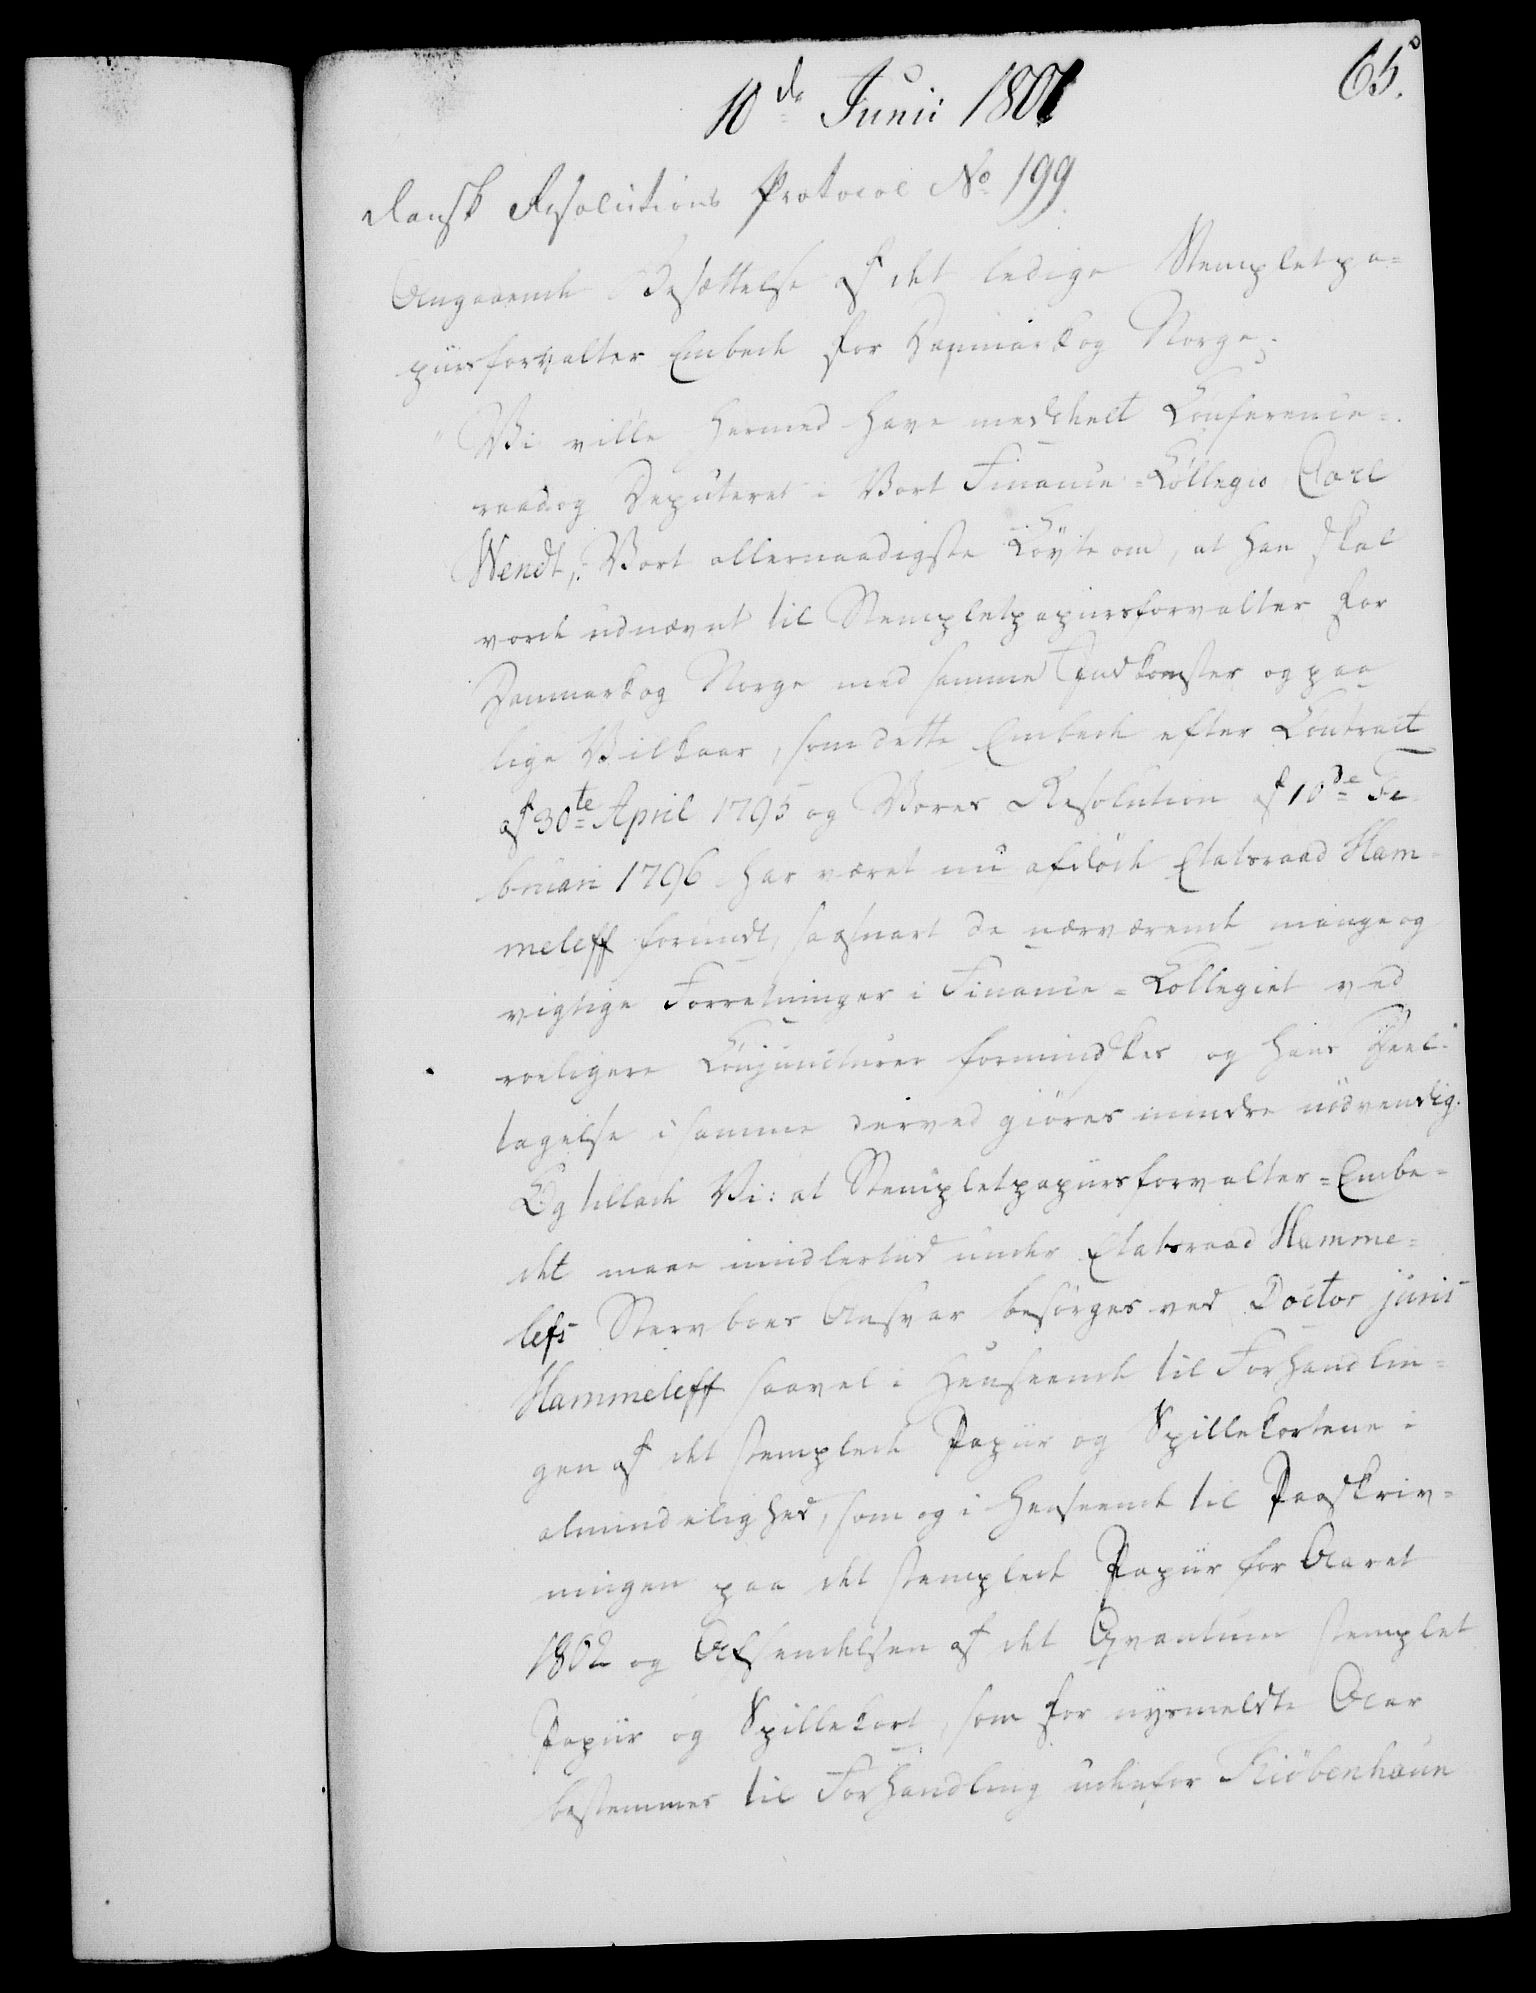 65.
10de Junii 1801
Dansk Resolutions Protocol No 199
Angaaende Besættelse af det ledige Stempletpa=
piirsforvalter Embede for Danmark og Norge:
"Vi ville hermed have meddeelt Conference=
raad og Deputeret i Vort Finance=Collegio Carl
Wendt, Vort allernaadigste Løvte om, at han skal
vorde udnævnt til Stempletpapiirsforvalter for
Danmark og Norge med samme Indkomster og paa
lige Vilkaar, som dette Embede efter Contract
af 30te April 1795 og Vores Resolution af 10de Fe
bruari 1796 har været nu afdøde Etatsraad Ham=
meleff forundt, saasnart de nærværende mange og
vigtige Forretninger i Finance=Collegiet ved
roeligere Conjuncturer formindskes, og hans Deel=
tagelse i samme derved giøres mindre nødvendig.
Og tillade Vi: at Stempletpapiirsforvalter=Embe=
det maae imidlertid under Etatsraad Hamme=
lefs Stervboes Ansvar besørges ved Doctor juris
Hammeleff saavel i Henseende til Forhandlin=
gen af det stemplede Papiir og Spillekortene i
almindelighed, som og i Henseende til Paaskriv=
ningen paa det stemplede Papiir for Aaret
1802 og Afsendelsen af det Qvantum stemplet
Papiir og Spillekort, som for nysmeldte Aar
bestemmes til Forhandling udenfor Kiøbenhavn